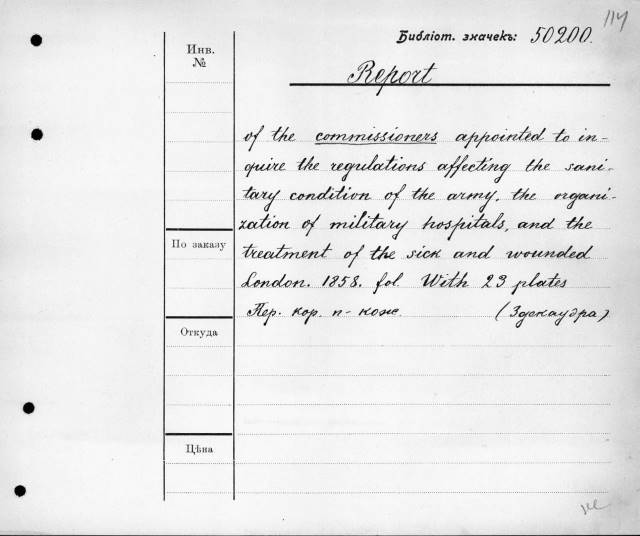 114
Библіот. значекъ: 50200.
Инв.
№
Report
of the commissioners appointed to in-
quire the regulations affecting the sani-
tary condition of the army, the organi-
zation of military hospitals, and the
treatment of the sick and wounded
London. 1858. fol. With 23 plates
Пер. кор. п-кож. (Здекауэра)
По заказу
Откуда
Цѣна